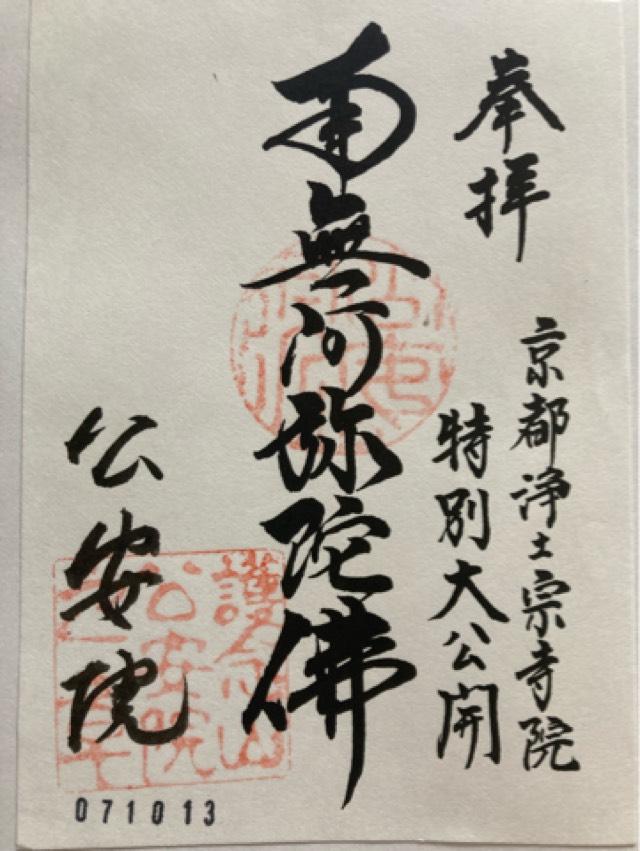 奉拝
京都浄土宗寺院
特別大公開
南無阿弥陀佛
公安院
071013